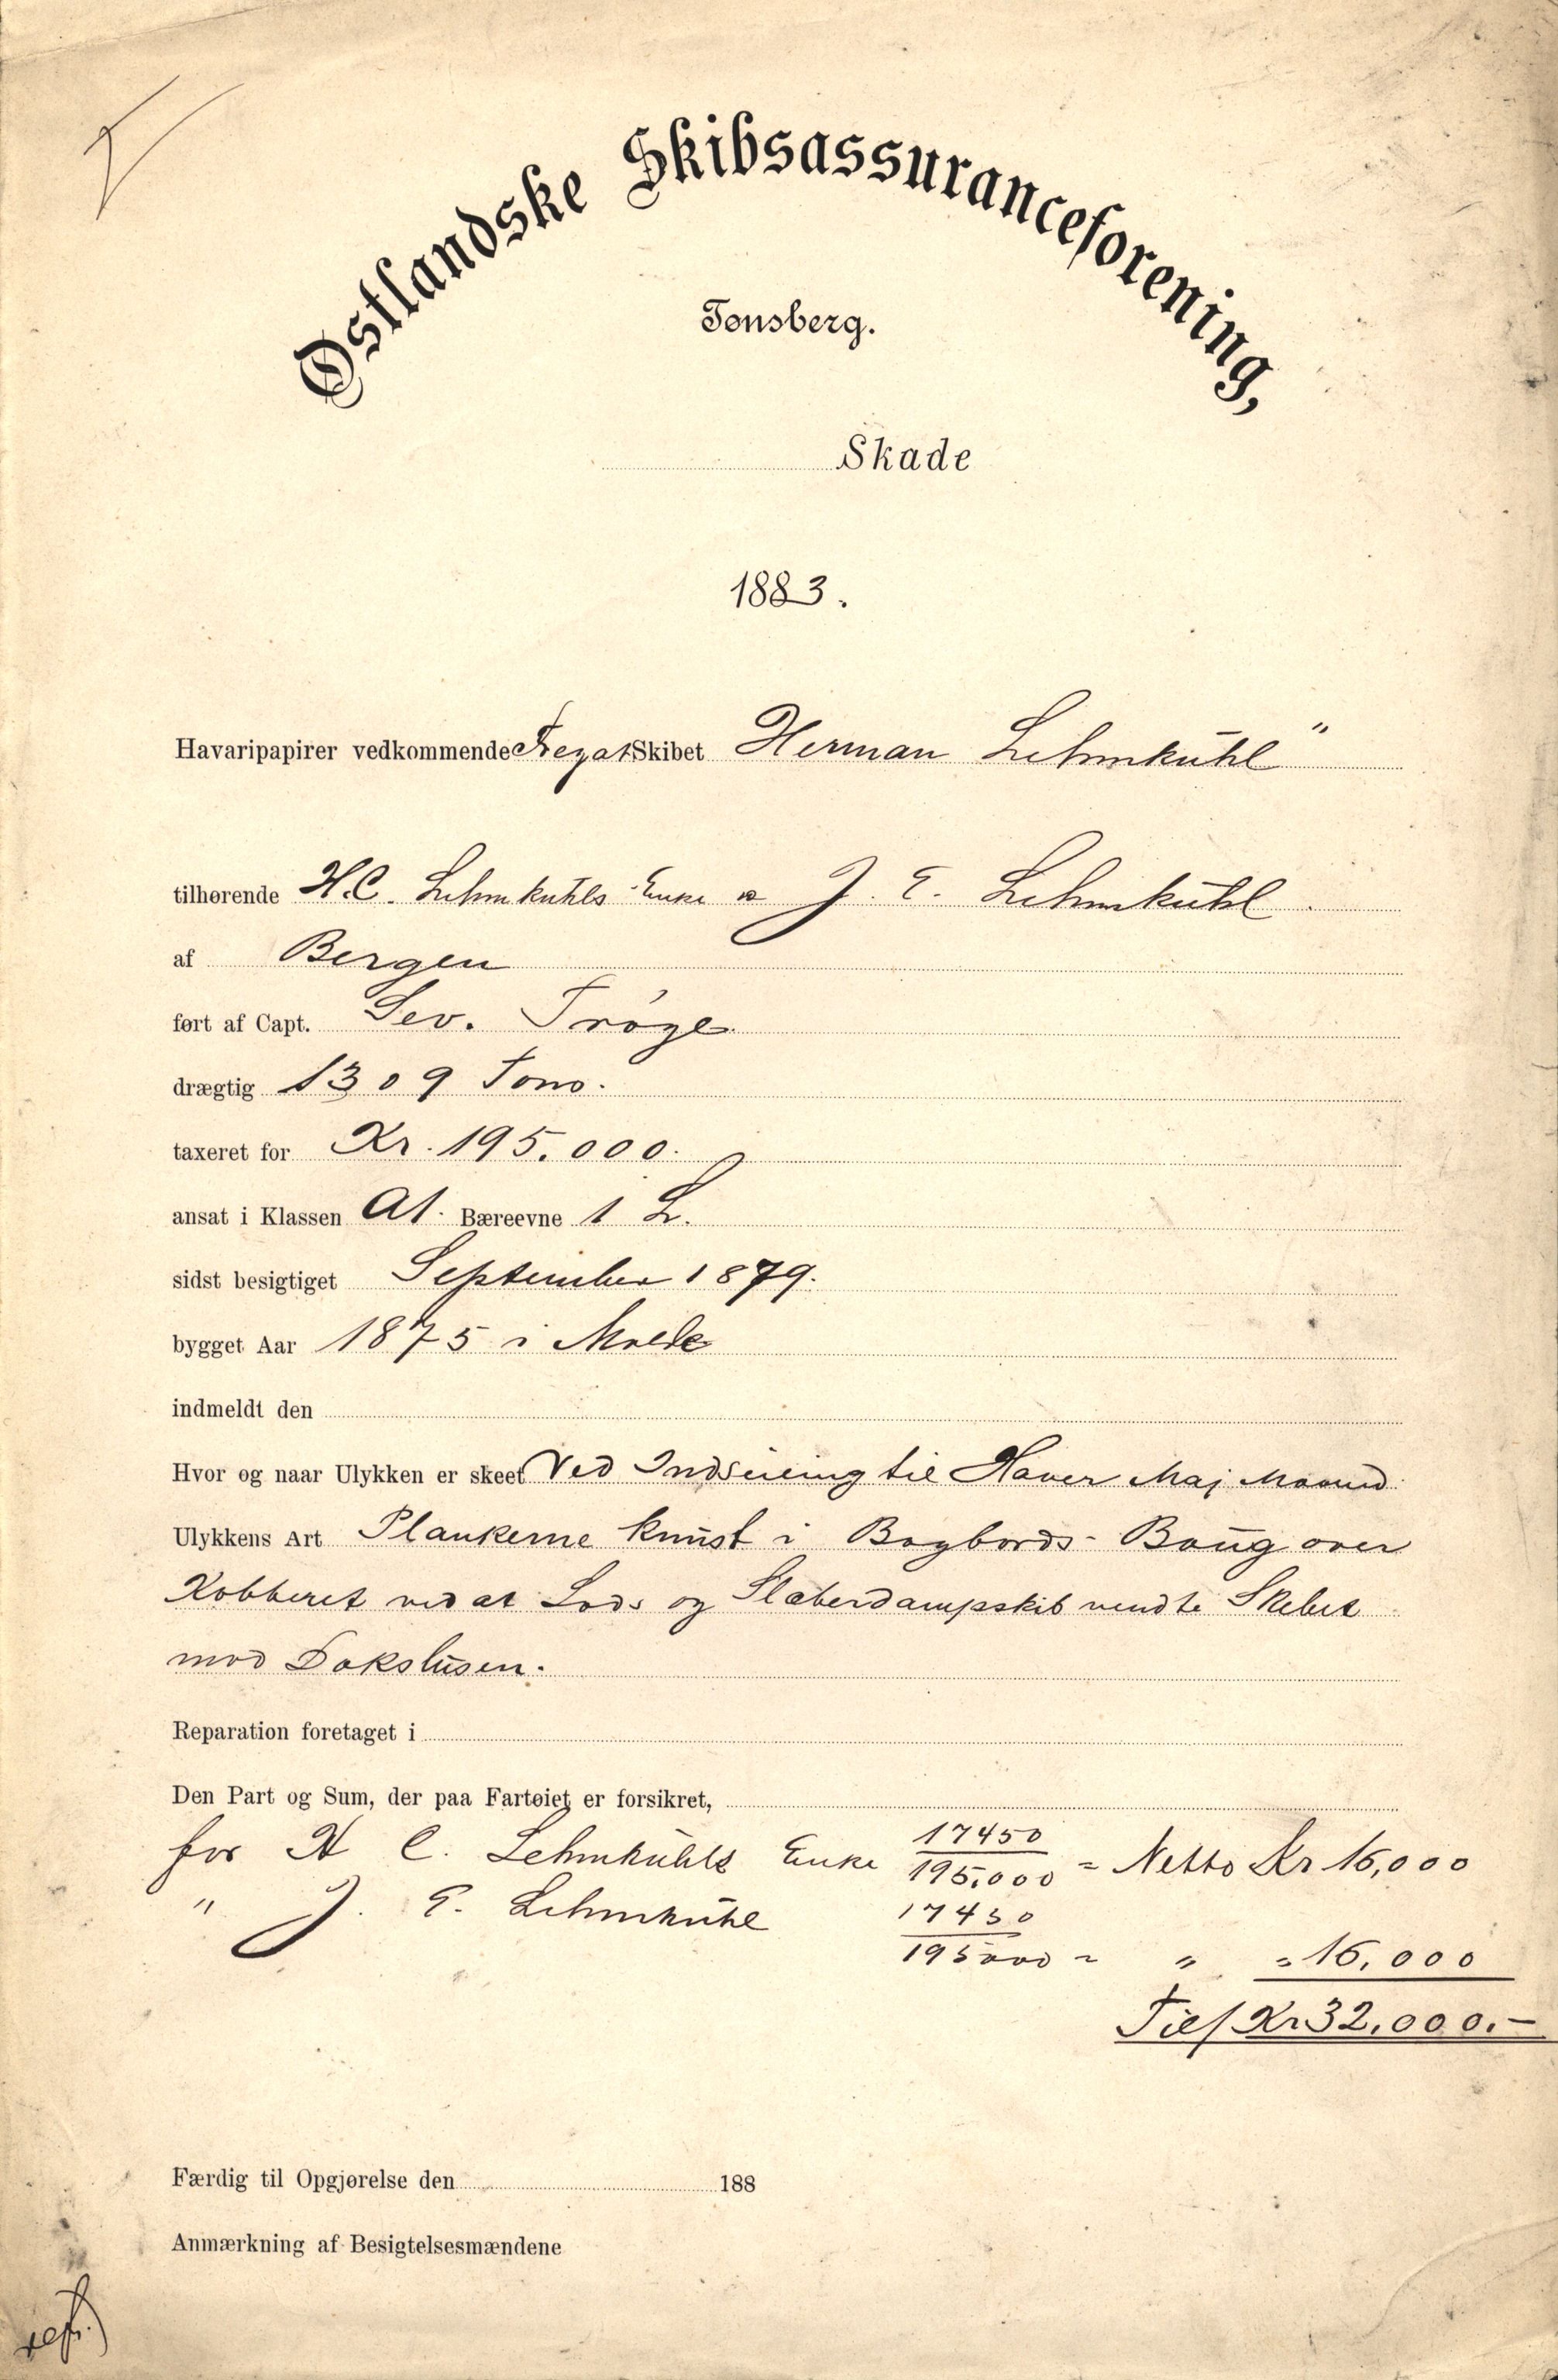 Østlandske Skibsassuranceforening,
Tønsberg.
Skade
1883.
Havaripapirer vedkommende Fregat Skibet Herman Lehmkühl"
tilhørende H.C. Lehmkühls Enke & J. E. Lehmkühl.
af Bergen
ført af Capt. Sev. Tröge
drægtig 1309 Tons.
taxeret for Kr. 195.000.
ansat i Klassen A1. Bæreevne 1 L.
sidst besigtiget September 1879.
bygget Aar 1875 i Molde
indmeldt den
Hvor og naar Ulykken er skeet Ved Indseiling til Havre Maj Maaned
Ulykkens Art Plankerne knust i Bagbords Boug over
Kobberet ved at Lods og Slæberdampskib vendte Skibet
mod Dokslusen.
Reparation foretaget i
Den Part og Sum, der paa Fartøiet er forsikret,
for H C. Lehmkühls Enke 17450/195.000 = Netto Kr 16,000
" J. E. Lehmkühl 17450/195000 = " = 16,000
Til/ Kr 32,000.-
Færdig til Opgjørelse den 188
Anmærkning af Besigtelsesmændene